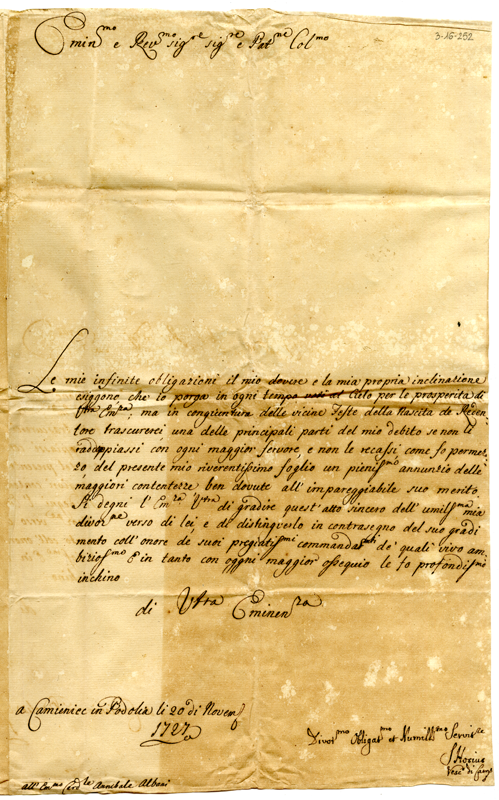 3-16-252
Emin^mo e Rev^mo sig^re sig^re e Pat^ne Col^mo
Le mie infinite obligazioni il mio dovere e la mia propria inclinatione
esiggono che io porga in ogni tempo voti al Cielo per le prosperità di
Vtra Em^za; ma in congiuntura delle vicine Feste della Nascita de Reden-
tore trascurerei una delle principali parti del mio debito se non li
raddoppiassi con ogni maggior fervore, e non le recassi come fo per mez-
zo del presente mio riverentissimo foglio un pieniss^mo annunzio delle
maggiori contentezze ben dovute all'impareggiabile suo merito.
Si degni l'Em^za V^tra di gradire quest'atto sincero dell'umilis^ma mia
divoz^ne verso di lei, e di distinguerlo in contrasegno del suo gradi
mento coll'onore de suoi pregiatiss^mi commandam^nti de' quali vivo am-
bizios^mo E in tanto con oggni maggior ossequio le fo profondiss^mo
inchino
di V^tra Eminen^za
a Camieniec in Podolia li 20 di Novem
1727
Divot^mo Obligat^mo et Humill^mo Servit^re
all' Em^mo Card^le Annibale Albani